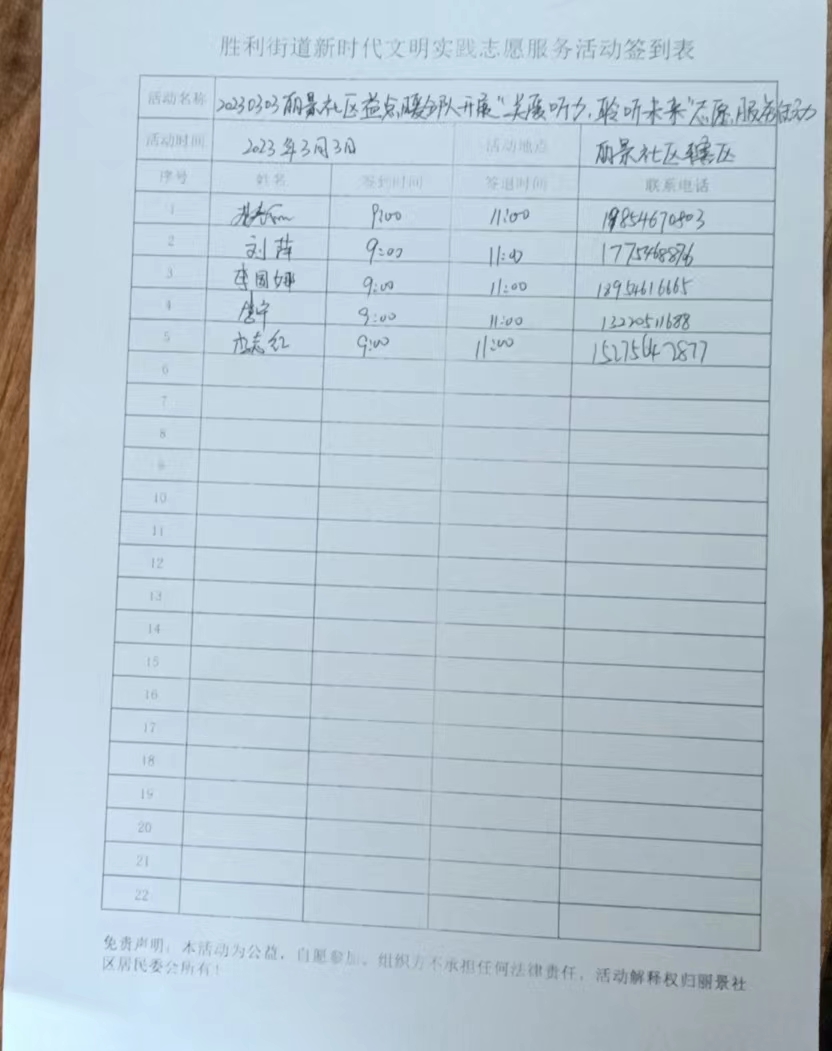 胜利街道新时代文明实践志愿服务活动签到表
活动名称 20230303丽景社区益点暖全队开展"关爱听力,聆听未来"志愿服务活动
活动时间 2023年3月3日 活动地点 丽景社区辖区
序号 姓名 签到时间 签退时间 联系电话
1 9:00 11:00
2 刘萍 9:00 11:00 1775468876
3 李国娜 9:00 11:00 13954616665
4 9:00 11:00 13220511688
5 志红 9:00 11:00 15275642877
6
7
8
9
10
11
12
13
14
15
16
17
18
19
20
21
22
免责声明:本活动为公益,自愿参加。组织方不承担任何法律责任,活动解释权归丽景社
区居民委会所有!